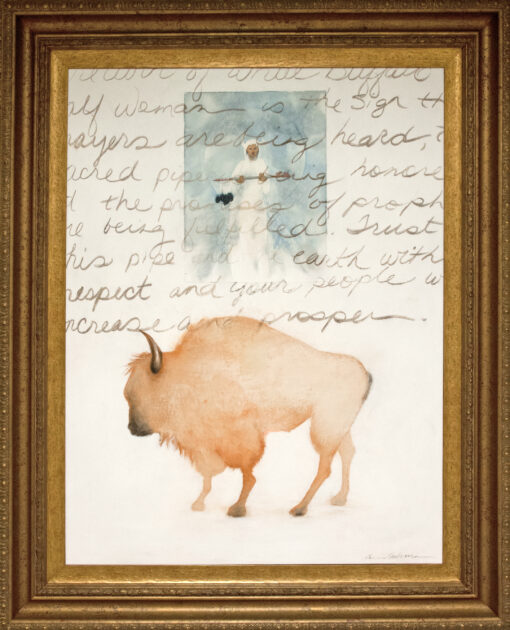 of White Buffal
alf Woman is the sign th
rayers are being heard,
acred pipe being honore
d the promises of proph
re being fulfilled. Trust
his pipe and earth with
respect and your people w
ncrease and prosper.